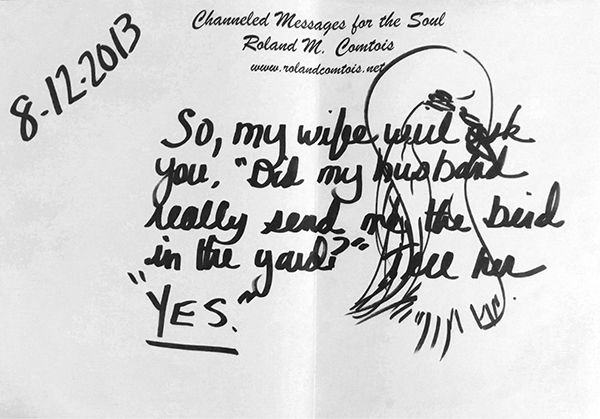 Channeled Messages for the Soul
Roland M. Comtois
www.rolandcomtois.net
8-12-2013
So, my wife will ask
you, "Did my husband
really send me the bird
in the yard?" Tell her
"YES."